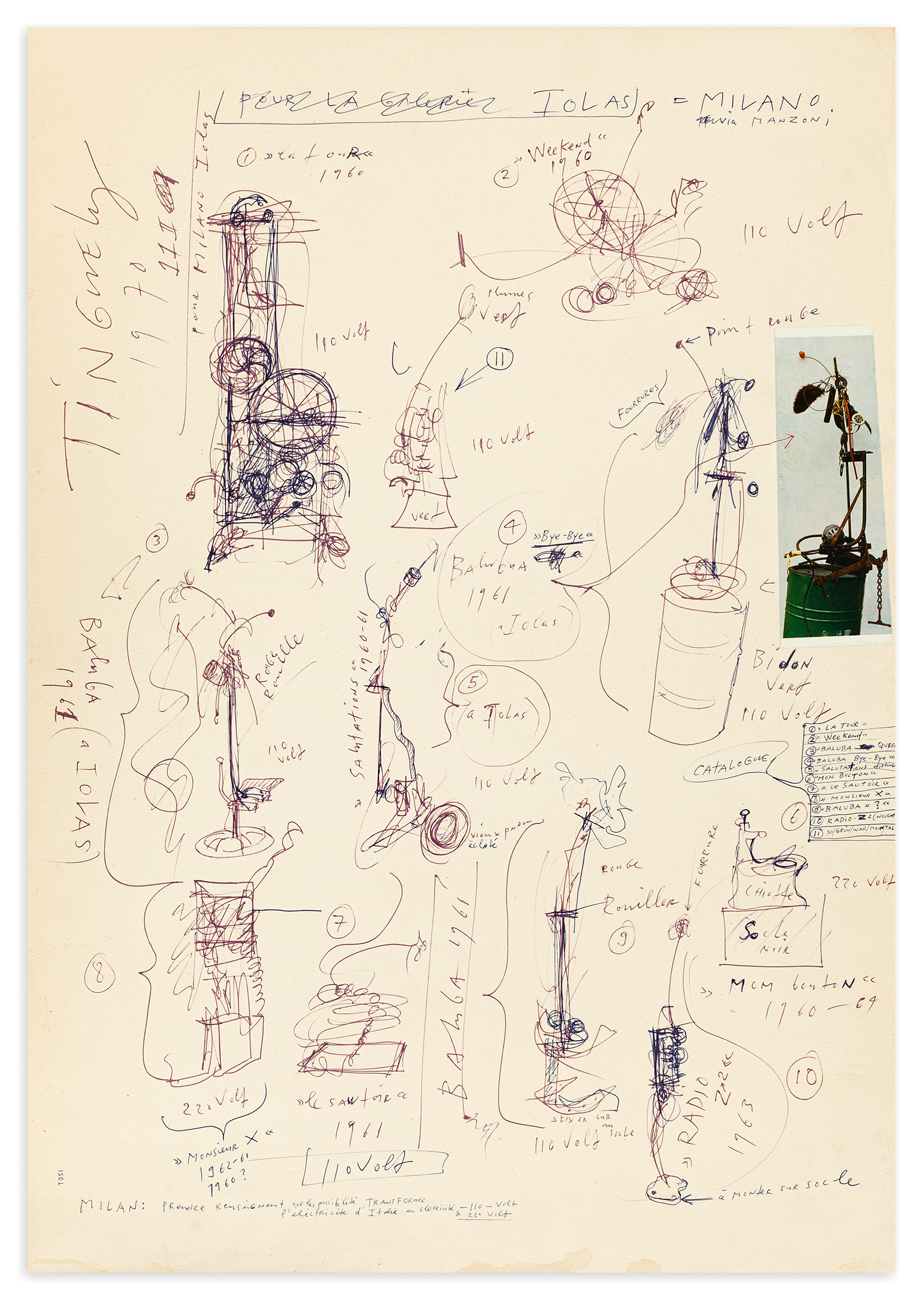 POUR LA GALERIE IOLAS = MILANO
via MANZONI
TINGUELY
1970
pour MILANO Iolas
① »La tour«
1960
110 Volt
② »Weekend«
1960
110 Volt
Plumes
Vert
⑪
110 Volt
vert
point rouge
FOURRURES
④
BALUBA »Bye-Bye«
1961
Iolas
Bidon
Vert
110 Volt
③
BALUBA
1961
(à IOLAS)
ROUGE
Rouille
110
Volt
»Salutations« 1960-61
⑤
(à Iolas)
110 Volt
vieux pneu
éclaté
CATALOGUE
① »LA TOUR«
② »Weekend«
③ BALUBA
④ BALUBA Bye-Bye«
⑤ »SALUTATIONS
⑥ MON BOUTON«
⑦ »LE SAUTOIR«
⑧ »MONSIEUR X«
⑨ »BALUBA« »?«
⑩ RADIO
⑪
⑥
FOURRURE
CHIOTTE
220 Volt
Socle
NOIR
»Mon bouton«
1960-64
⑧
220 Volt
»Monsieur X«
1962-61
1960?
⑦
»le sautoir«
1961
110 Volt
BALUBA 1961
⑨
rouge
Rouiller
110 Volt
⑩
»RADIO
1963
à monter sur socle
MILAN: Prendre renseignement sur la possibilité TRANSFORMER
l'électricité d'Italie en électricité -110-Volt
& 220 Volt
TOSI